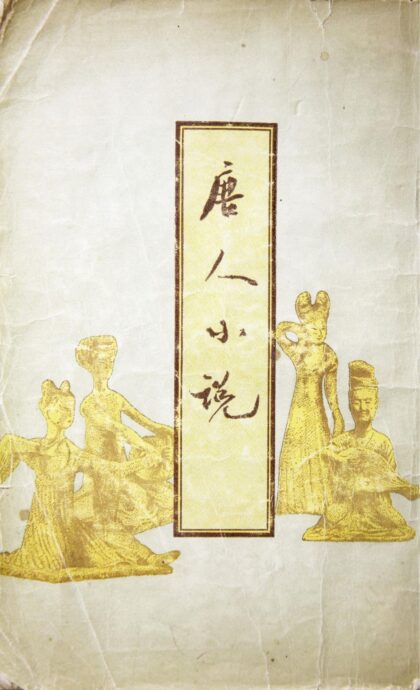 唐人小说